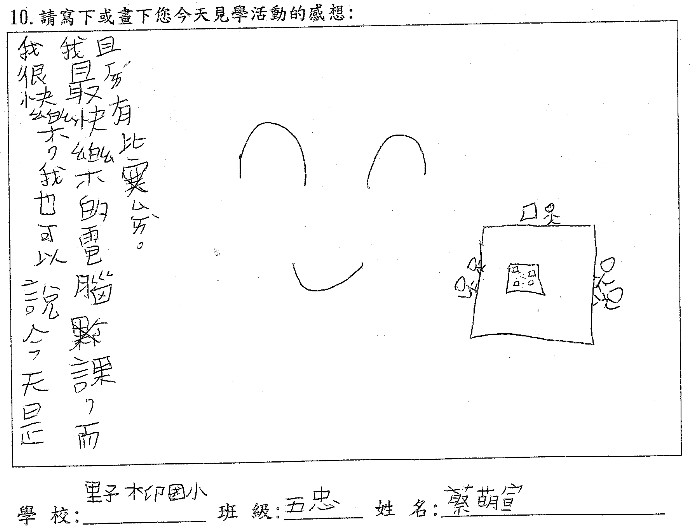 10.請寫下或畫下您今天見學活動的感想:
我很快樂,我也可以說今天是
我最快樂的電腦課,而
且有比賽。
學校:野柳國小 班級:五忠 姓名:蔡萌宣